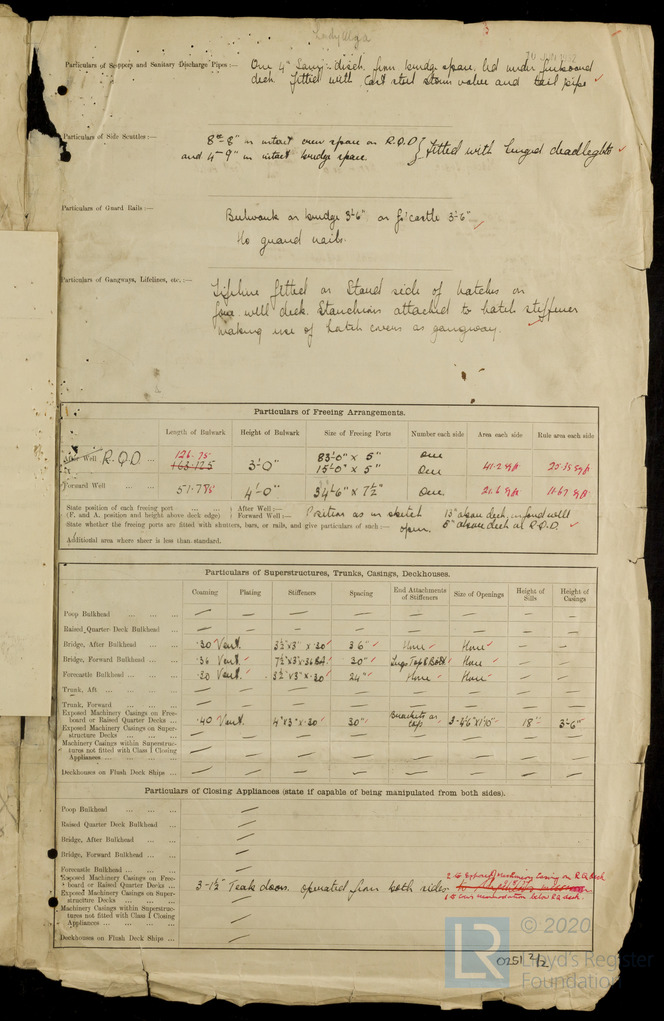 Lady Olga
Particulars of Scuppers and Sanitary Discharge Pipes :— One 4" Sany: disch. from bridge space, led under
deck. Fitted with cast steel storm valve and tail pipe ✓
Particulars of Side Scuttles :— 8 - 8" in intact crew space on R.Q.D } Fitted with hinged deadlights ✓
and 4 - 9" in intact bridge space
Particulars of Guard Rails :— Bulwark on bridge 3'-6" on fo'castle 3'-6" ✓
No guard rails.
Particulars of Gangways, Lifelines, etc. :— Lifeline fitted on Stand side of hatches on
fore well deck. Stanchions attached to hatch stiffener
making use of hatch covers as gangway. ✓
Particulars of Freeing Arrangements.
Length of Bulwark Height of Bulwark Size of Freeing Ports Number each side Area each side Rule area each side
After Well R.Q.D 126.75 163.125 3'-0" 83'-0" x 5" One
15'-0" x 5" One 41.2 sq ft 20.35 sq ft
Forward Well 51.785 4'-0" 34'-6" x 7½" One 21.6 sq ft 11.67 sq ft
State position of each freeing port } After Well :—
(F. and A. position and height above deck edge) } Forward Well :— Position as in sketch 13" above deck in ford well
State whether the freeing ports are fitted with shutters, bars, or rails, and give particulars of such :— open. 5" above deck at R.Q.D. ✓
Additional area where sheer is less than standard.
Particulars of Superstructures, Trunks, Casings, Deckhouses.
Coaming Plating Stiffeners Spacing End Attachments of Stiffeners Size of Openings Height of Sills Height of Casings
Poop Bulkhead — — — — — — — —
Raised Quarter Deck Bulkhead — — — — — — — —
Bridge, After Bulkhead .30 Vert. 3½"x3" x .30 ✓ 36" ✓ None ✓ None ✓ — —
Bridge, Forward Bulkhead .36 Vert. ✓ 7½"x3"x.36 B.A. 30" ✓ Lugs Top & Bott ✓ None ✓ — —
Forecastle Bulkhead .30 Vert. ✓ 3½"x3"x.30 ✓ 24" ✓ None ✓ None ✓ — —
Trunk, Aft — — — — — — — —
Trunk, Forward — — — — — — — —
Exposed Machinery Casings on Free-
board or Raised Quarter Decks .40 Vert. 4"x3"x.30 ✓ 30" ✓ Brackets at top ✓ 18" 3'-6" ✓
Exposed Machinery Casings on Super-
structure Decks — — — — — — — —
Machinery Casings within Superstruc-
tures not fitted with Class 1 Closing
Appliances — — — — — — — —
Deckhouses on Flush Deck Ships — — — — — — — —
Particulars of Closing Appliances (state if capable of being manipulated from both sides).
Poop Bulkhead —
Raised Quarter Deck Bulkhead —
Bridge, After Bulkhead —
Bridge, Forward Bulkhead —
Forecastle Bulkhead —
Exposed Machinery Casings on Free-
board or Raised Quarter Decks 3 - 1½" Teak doors. operated from both sides 2 to exposed machinery casing on R.Q. deck
1 to crew accommodation below R.Q. deck.
Exposed Machinery Casings on Super-
structure Decks —
Machinery Casings within Superstruc-
tures not fitted with Class 1 Closing
Appliances —
Deckhouses on Flush Deck Ships —
0251 2/2
© 2020
LR
Lloyd's Register
Foundation